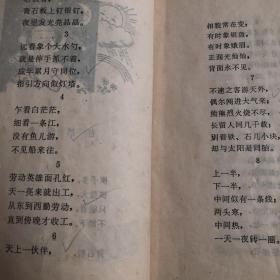 青石板上钉银钉，
夜里发光亮晶晶。
3
远看象个大水勺，
就是伸手抓不着，
成年累月守岗位，
指引方向做灯塔。
4
乍看白茫茫，
细看一条江，
没有鱼儿游，
不见船来往。
5
劳动英雄面孔红，
天一亮来就出工，
从东到西勤劳动，
直到傍晚才收工。
6
天上一伙伴，
相貌常在变：
有时象银盘，
有时象娥眉，
正面光灿灿，
背面永不见。
7
不速之客游天外，
偶尔闯进大气来；
熊熊烈火烧不尽，
长留人间几千载；
别看铁、石几小块，
却与太阳是同胎。
8
上一半，
下一半，
中间似有一条线；
两头寒，
中间热，
一天一夜转一圈。